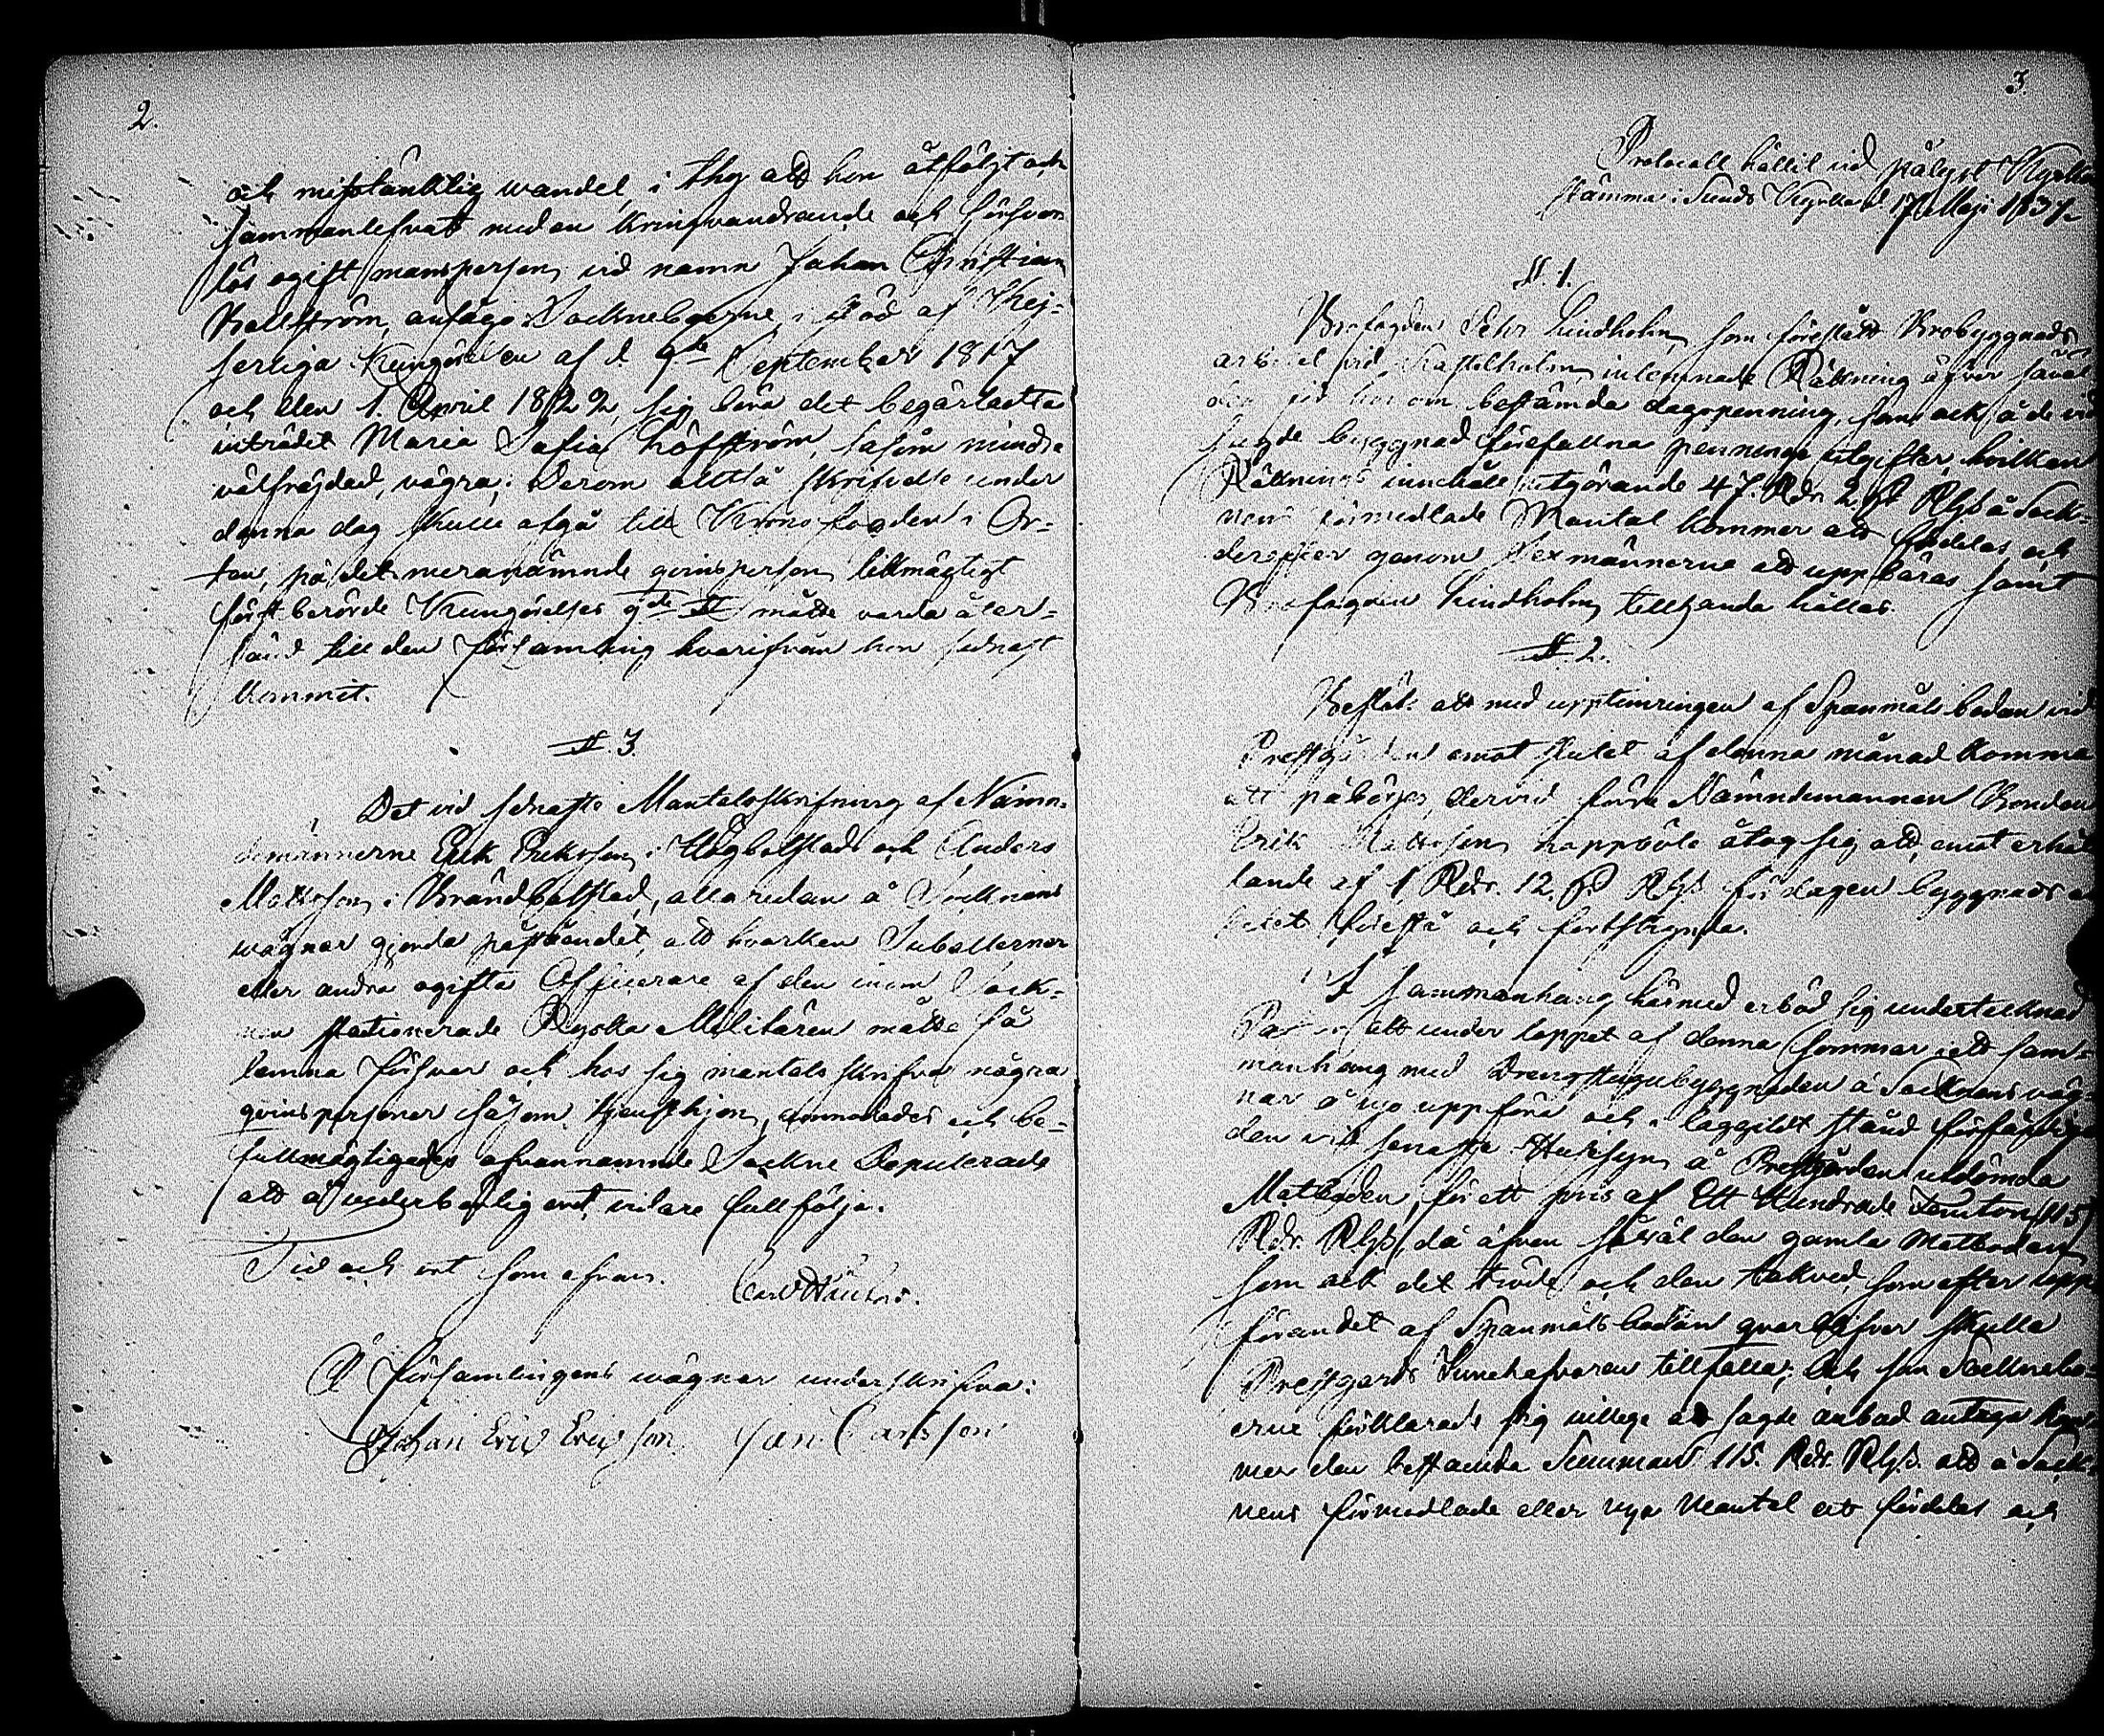 2.
och misstänktlig wandel, i thy att hon åtföljt och
sammanlefvat med en kringvandrande och försvars
lös ogift mansperson vid namn Johan Christian
Kallström, ansågo Sockneboerne, i stöd af Kej-
serliga Kungörelsen af d. 9de September 1817
och den 1. April 1822, sig böra det begärta
inträdet Maria Sofia Höffström, såsom mindre
välfrejdad, vägra; Derom altså skrifvelse under
denna dag skulle afgå till Kronofogden i Or-
ten, på det meranämnde qvinsperson likmägtigt
först berörde Kungörelses 9de § måtte varda åter-
sänd till den Församling hvarifrån hon sednast
kommit.
§. 3.
Det vid sednaste Mantalsskrifning af Nämn-
demännerne Erik Eriksson i Högbolstad och Anders
Mattsson i Brändbolstad, allaredan å Socknens
wägnar gjorda påståendet, att hvarken Subalterner
eller andra ogifta Officerare af den inom Sock-
nen stationerade Ryska Militären måtte få
lemna försvar och hos sig mantals skrifva några
qvinspersoner såsom tjensthjon, och be-
fullmägtigades ofvannämnde Sockne Deputerade
att å vederbörlig ort vidare fullfölja.
Tid och ort som ofvan.
Carl
Å Församlingens wägnar underskrifva:
Johan Eric Ericsson Jan Carlsson
3.
Protocoll hållit vid pålyst Kyrko
stämma i Sunds Kyrka d. 17 Maji 1837.
§. 1.
Brofogden Pehr Lindholm, som förestått Brobyggnads
arbetet vid Kastelholm, inlemnade Räkning öfver såväl
den för honom bestämda dagspenning, som ock å de vid
sagde byggnad förefallna penninge utgifter, hvilken
Räknings innehåll utgörande 47 Rdr. 2 ß Rgs å Sock-
nens förmedlade Mantal kommer att fördelas och
derefter genom Sexmännerne att uppbäras samt
Brofogden Lindholm tillhanda hållas.
§. 2.
Beslöts att med upptimringen af Spanmåls boden vid
Prestgården emot slutet af denna månad komma
att påbörjas, dervid förre Nämndemannen Bonden
Erik Mattsson åtog sig att, emot erhål
lande af 1 Rdr. 12. ß Rgs. för dagen byggnads ar
betet förestå och fortskynda.
I sammanhang härmed erböd sig undertecknad
Pastor att under loppet af denna sommar i ett sam-
manhang med Drengstugubyggnaden å Socknens väg-
nar å nyo uppföra och i laggildt stånd förfärdiga
den vid senaste Husesyn å Prestgården utdömda
Matboden, för ett pris af Ett Hundrade Femton (115)
Rdr. Rgs, då äfven såväl den gamla Matboden
som ock det tröde och den takved, som efter upp
förandet af Spanmåls boden qvarblifver skulle
Prestgårds Innehafvaren tillfalla; och som Sockneboe-
erne förklarade sig villige att sagde anbud antaga kom-
mer den bestämda Summan 115. Rdr. Rgs. att å Sock-
nens förmedlade eller nya Mantal att fördelas och